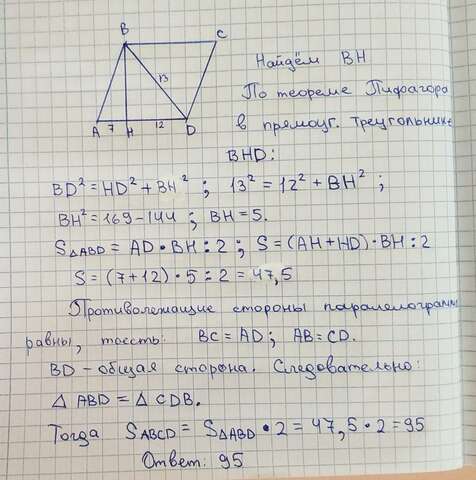 B
C
13
A
7
H
12
D
Найдём BH
По теореме Пифагора
в прямоуг. треугольнике
BHD:
BD² = HD² + BH² ; 13² = 12² + BH² ;
BH² = 169 - 144 ; BH = 5.
S△ABD = AD • BH : 2 ; S = (AH + HD) • BH : 2
S = (7 + 12) • 5 : 2 = 47,5
Противолежащие стороны паралелограмм
равны, тоесть: BC = AD ; AB = CD.
BD - общая сторона. Следовательно:
△ ABD = △ CDB.
Тогда SABCD = S△ABD • 2 = 47,5 • 2 = 95
Ответ: 95